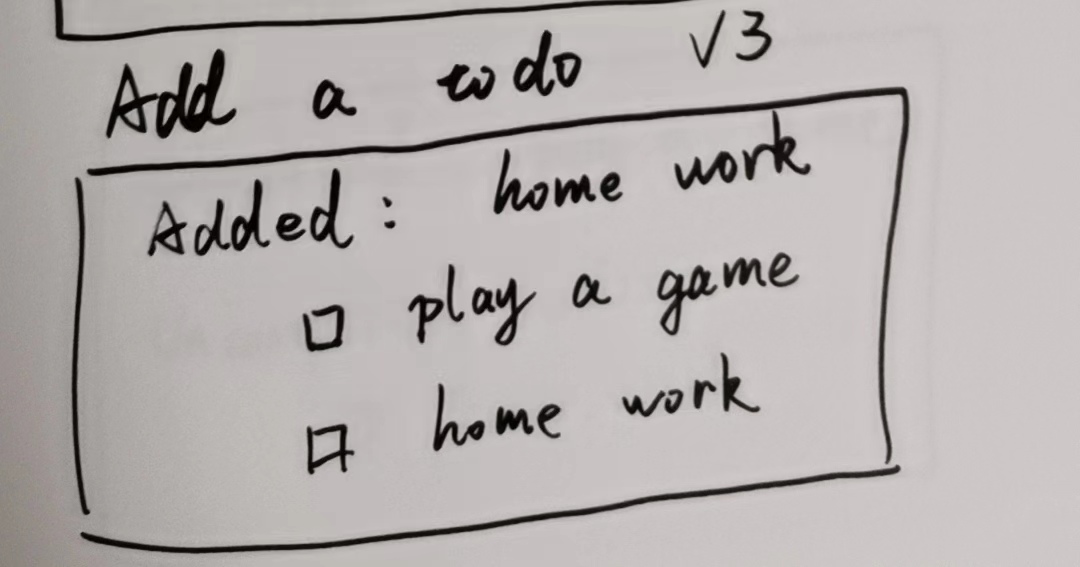 Add a todo V3
Added: home work
□ play a game
□ home work